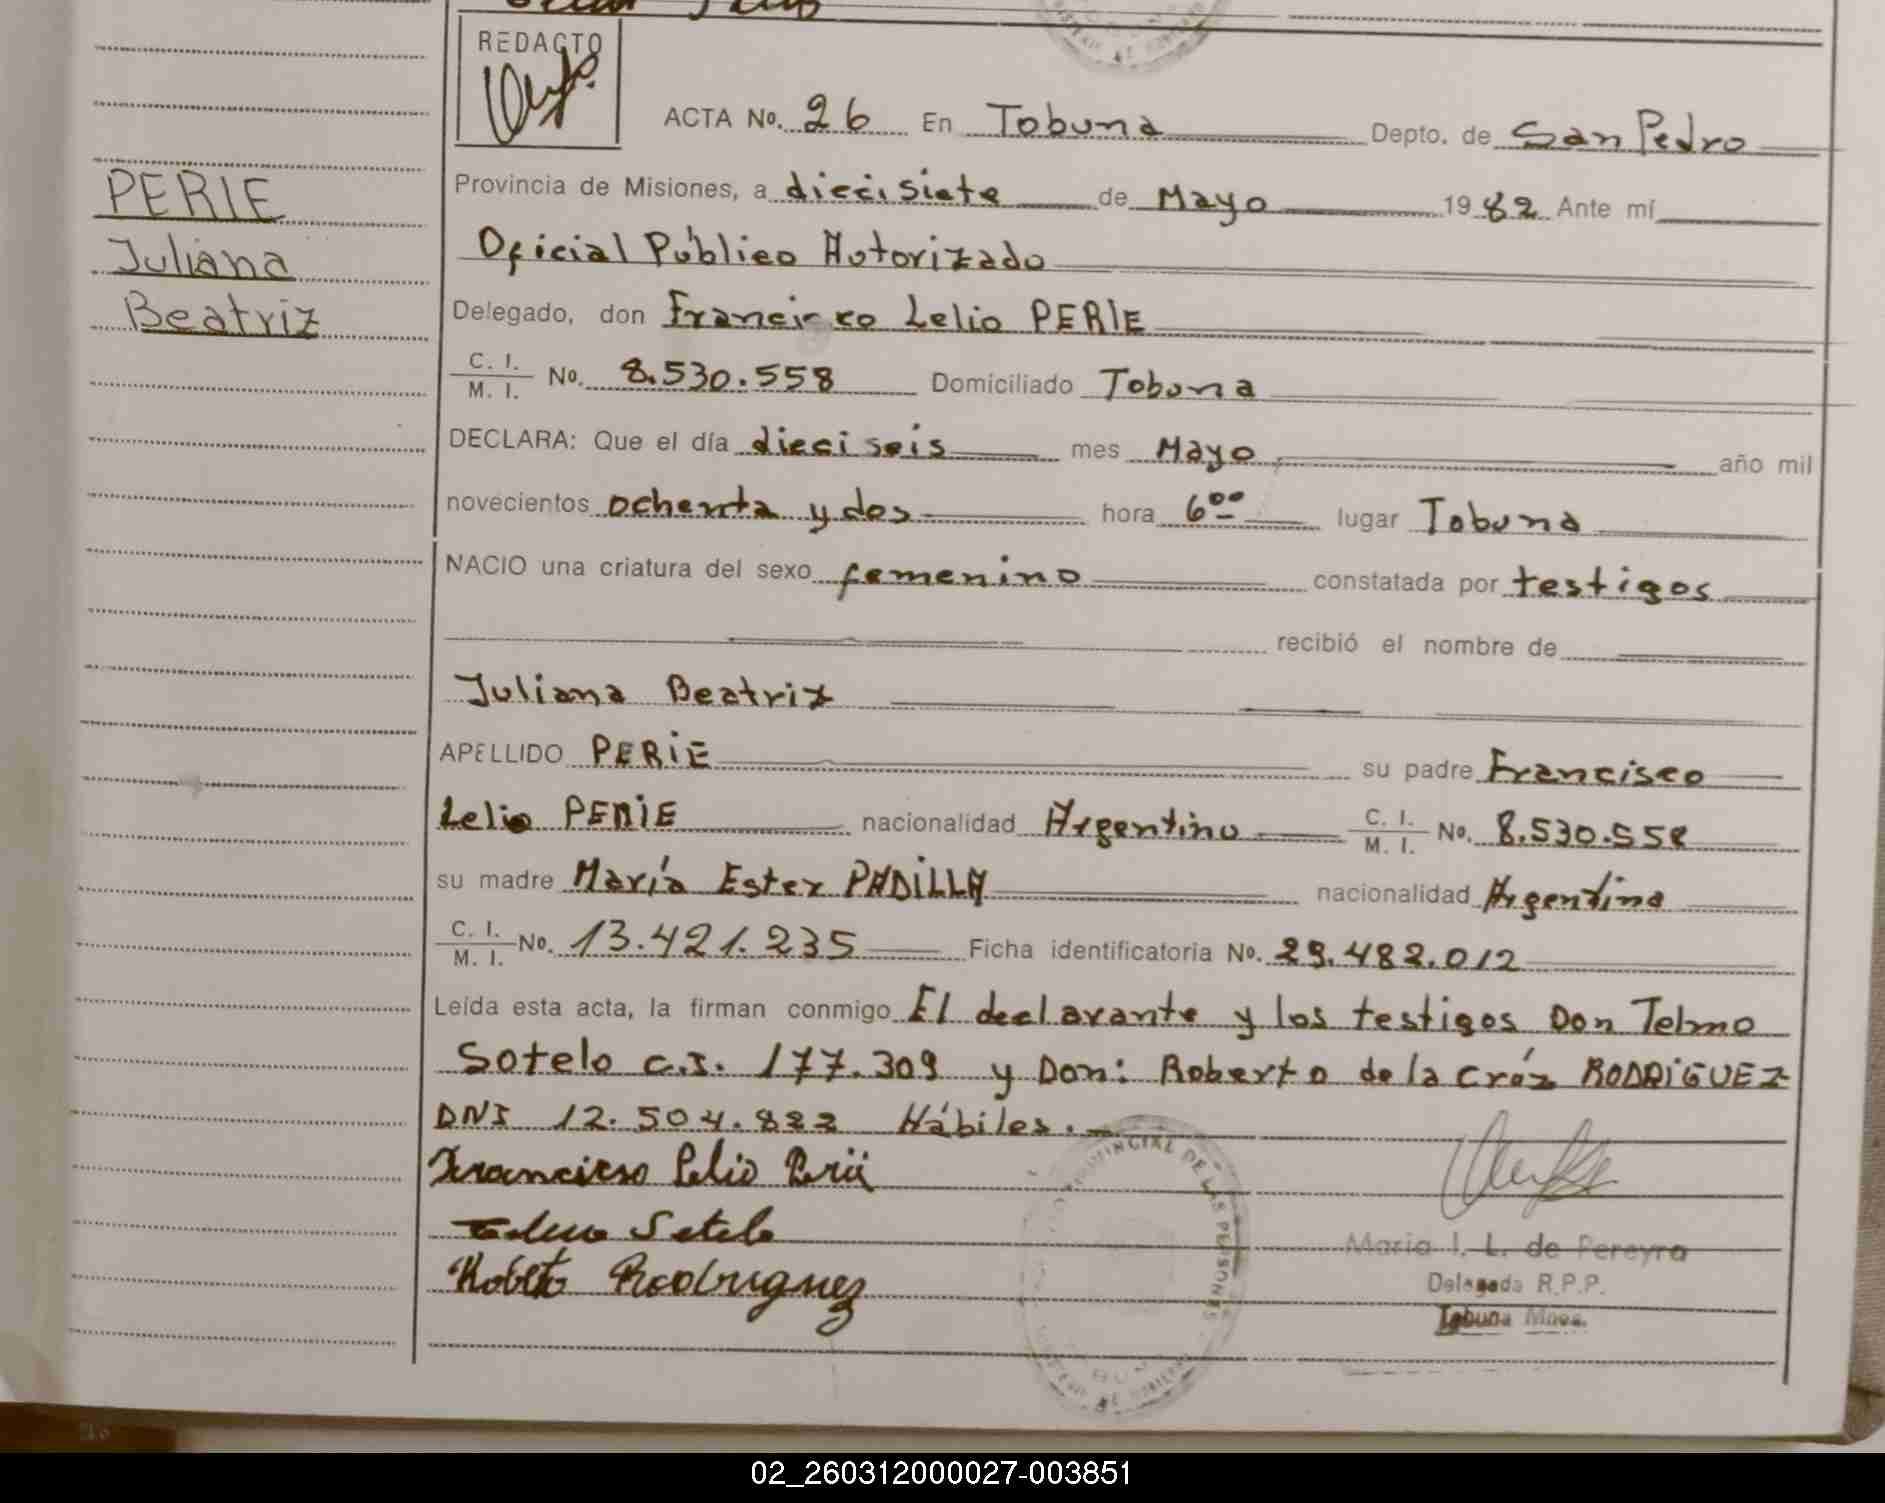 REDACTO
ACTA No. 26 En Tobuna Depto. de San Pedro
PERIE
Juliana
Beatriz
Provincia de Misiones, a diecisiete de Mayo 1982 Ante mí
Oficial Público Autorizado
Delegado, don Francisco Lelio PERIE
C. I.
M. I. No. 8.530.558 Domiciliado Tobuna
DECLARA: Que el día dieciseis mes Mayo año mil
novecientos ochenta y dos hora 6⁰⁰ lugar Tobuna
NACIO una criatura del sexo femenino constatada por testigos
recibió el nombre de
Juliana Beatriz
APELLIDO PERIE su padre Francisco
Lelio PERIE nacionalidad Argentino C. I. M. I. No. 8.530.558
su madre María Ester PADILLA nacionalidad Argentina
C. I. M. I. No. 13.421.235 Ficha identificatoria No. 29.482.012
Leída esta acta, la firman conmigo El declarante y los testigos Don Telmo
Sotelo C.I. 177.309 y Don: Roberto de la Cráz RODRIGUEZ
DNI 12.504.822 Hábiles.
Francisco Lelio Perié
Telmo Sotelo
Roberto Rodriguez
PROVINCIAL DE LAS PERSONAS
Maria I. L. de Pereyra
Delegada R.P.P.
Tobuna Mnes.
02_260312000027-003851